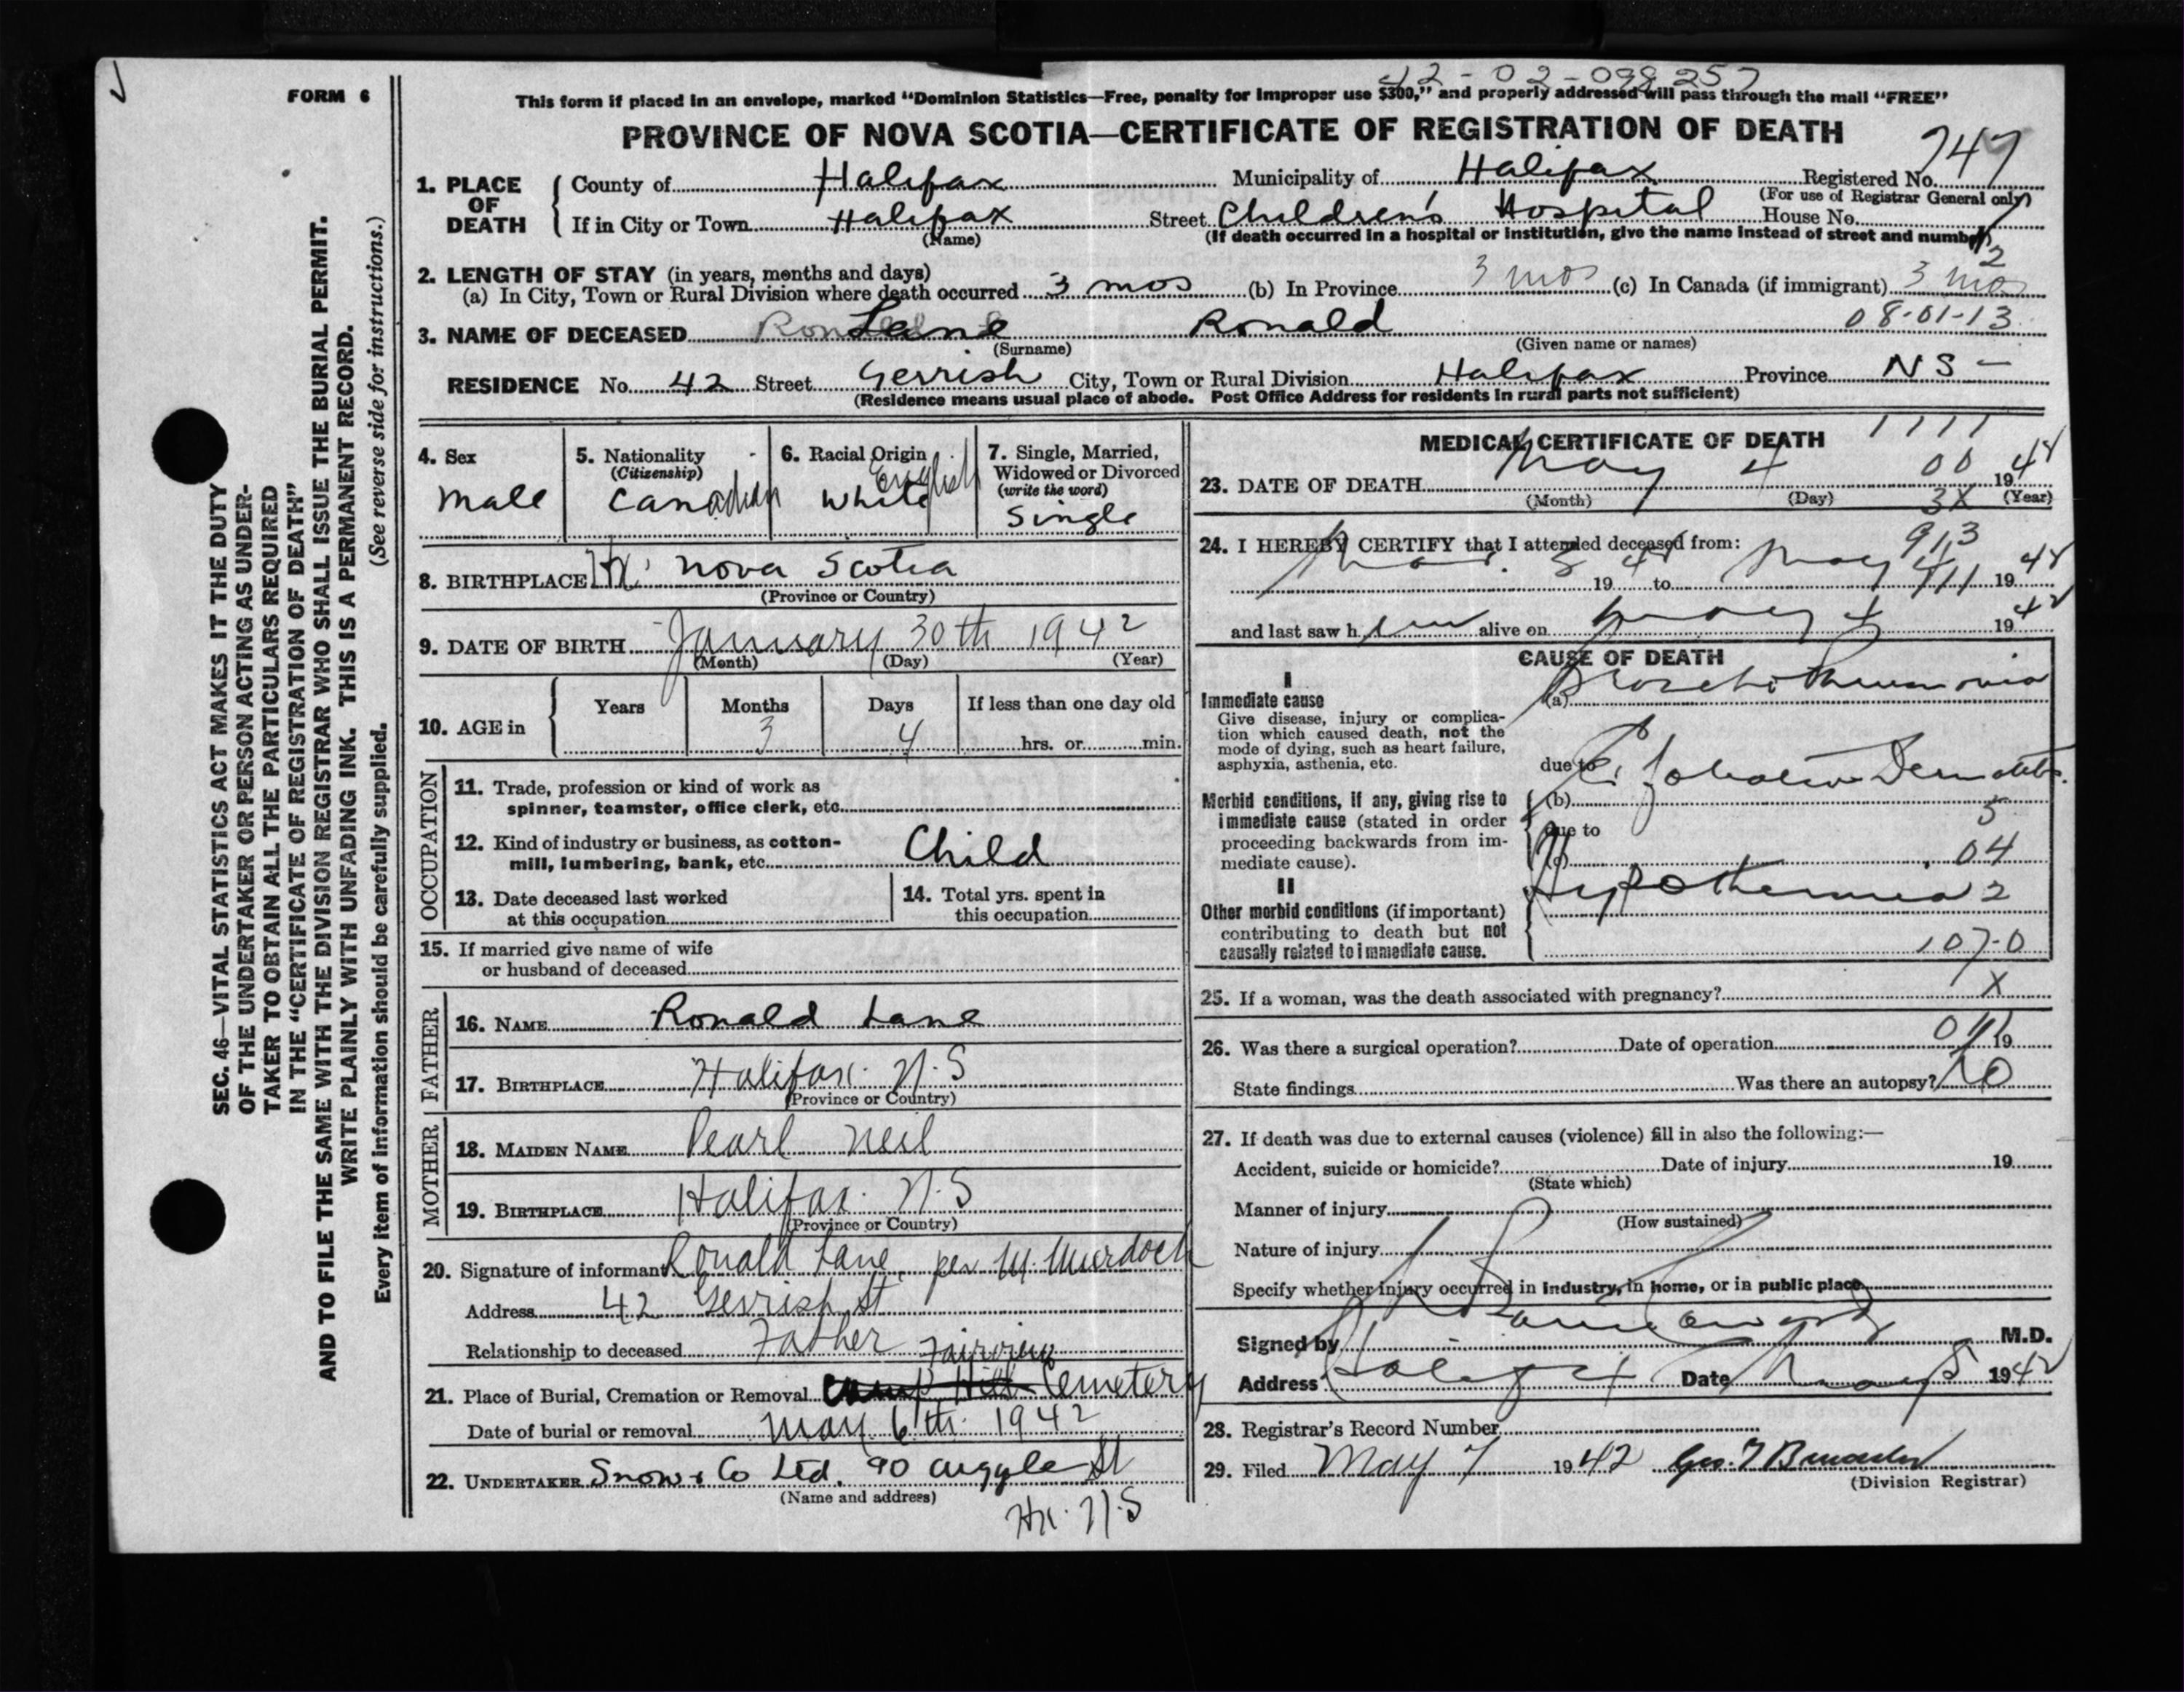 42-02-098257
FORM 6
This form if placed in an envelope, marked "Dominion Statistics—Free, penalty for improper use $300," and properly addressed will pass through the mail "FREE"
PROVINCE OF NOVA SCOTIA—CERTIFICATE OF REGISTRATION OF DEATH
747
1. PLACE OF DEATH { County of Halifax Municipality of Halifax Registered No.
(For use of Registrar General only)
If in City or Town Halifax Street Children's Hospital House No.
(Name) (If death occurred in a hospital or institution, give the name instead of street and number)
2
2. LENGTH OF STAY (in years, months and days)
(a) In City, Town or Rural Division where death occurred 3 mos (b) In Province 3 mos (c) In Canada (if immigrant) 3 mos
08-01-13
3. NAME OF DECEASED Lane Ronald
(Surname) (Given name or names)
RESIDENCE No. 42 Street Gerrish City, Town or Rural Division Halifax Province NS -
(Residence means usual place of abode. Post Office Address for residents in rural parts not sufficient)
4. Sex Male
5. Nationality (Citizenship) Canadian
6. Racial Origin English White
7. Single, Married, Widowed or Divorced (write the word) Single
8. BIRTHPLACE Hx. Nova Scotia
(Province or Country)
9. DATE OF BIRTH January 30th 1942
(Month) (Day) (Year)
10. AGE in { Years Months Days If less than one day old
3 4 hrs. or min.
OCCUPATION
11. Trade, profession or kind of work as spinner, teamster, office clerk, etc.
12. Kind of industry or business, as cotton-mill, lumbering, bank, etc. Child
13. Date deceased last worked at this occupation
14. Total yrs. spent in this occupation
15. If married give name of wife or husband of deceased
FATHER
16. NAME Ronald Lane
17. BIRTHPLACE Halifax. N.S
(Province or Country)
MOTHER
18. MAIDEN NAME Pearl Neil
19. BIRTHPLACE Halifax. N.S
(Province or Country)
20. Signature of informant Ronald Lane, per M. Murdoch
Address 42 Gerrish St
Relationship to deceased Father
Fairview
21. Place of Burial, Cremation or Removal Camp Hill Cemetery
Date of burial or removal May 6th. 1942
22. UNDERTAKER Snow & Co Ltd. 90 Argyle St
(Name and address)
Hx. N.S
MEDICAL CERTIFICATE OF DEATH 1111
23. DATE OF DEATH May 4 00 194
(Month) (Day) 3X (Year)
24. I HEREBY CERTIFY that I attended deceased from: 913
Mar. 8 19 to May 4 19
and last saw h im alive on May 4 1942
CAUSE OF DEATH
I
Immediate cause
Give disease, injury or complication which caused death, not the mode of dying, such as heart failure, asphyxia, asthenia, etc.
(a) Broncho Pneumonia
due to
(b) Dermatitis
Morbid conditions, if any, giving rise to immediate cause (stated in order proceeding backwards from immediate cause).
due to 5
(c) 04
II
Other morbid conditions (if important) contributing to death but not causally related to immediate cause.
2
107-0
25. If a woman, was the death associated with pregnancy? X
26. Was there a surgical operation? Date of operation 19
State findings Was there an autopsy? No
27. If death was due to external causes (violence) fill in also the following:—
Accident, suicide or homicide? Date of injury 19
(State which)
Manner of injury
(How sustained)
Nature of injury
Specify whether injury occurred in industry, in home, or in public place
Signed by M.D.
Address Halifax Date May 5 1942
28. Registrar's Record Number
29. Filed May 7 1942 Geo.
(Division Registrar)
SEC. 46—VITAL STATISTICS ACT MAKES IT THE DUTY
OF THE UNDERTAKER OR PERSON ACTING AS UNDER-
TAKER TO OBTAIN ALL THE PARTICULARS REQUIRED
IN THE "CERTIFICATE OF REGISTRATION OF DEATH"
AND TO FILE THE SAME WITH THE DIVISION REGISTRAR WHO SHALL ISSUE THE BURIAL PERMIT.
WRITE PLAINLY WITH UNFADING INK. THIS IS A PERMANENT RECORD.
Every item of information should be carefully supplied. (See reverse side for instructions.)